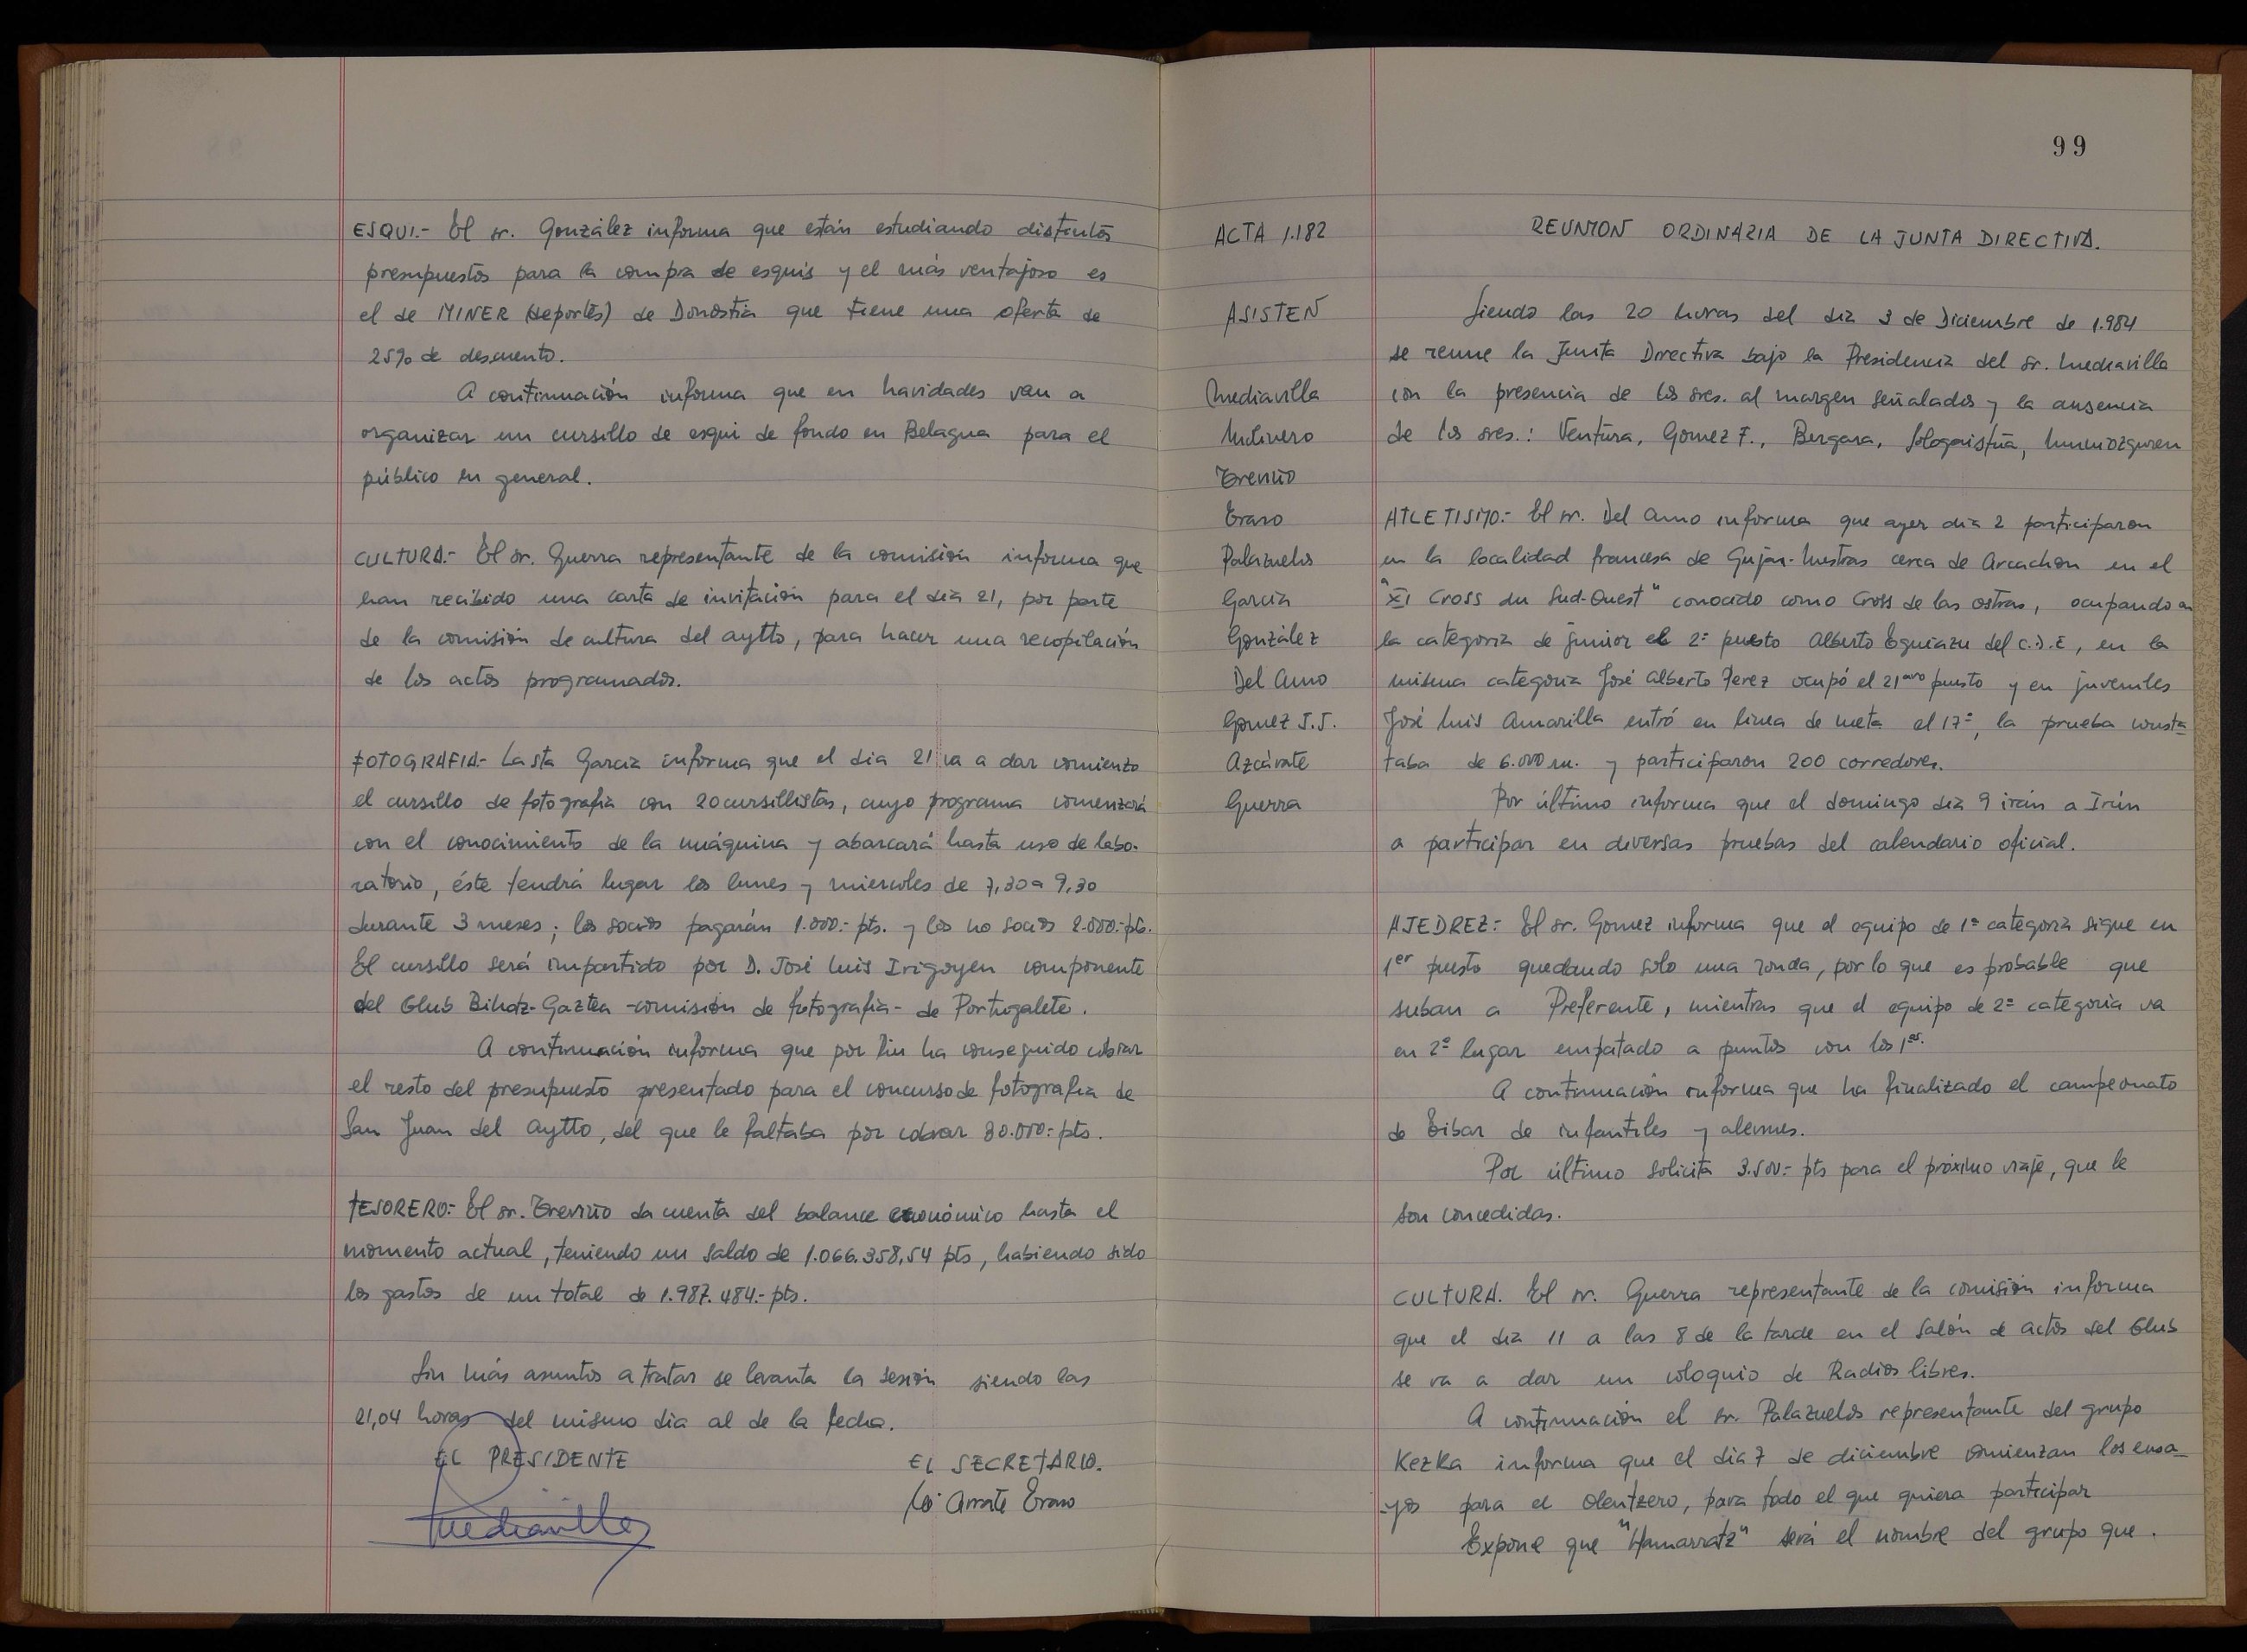 ESQUI.- El sr. González informa que están estudiando distintos
presupuestos para la compra de esquis y el más ventajoso es
el de MINER (deportes) de Donostia que tiene una oferta de
25% de descuento.
A continuación informa que en navidades van a
organizar un cursillo de esqui de fondo en Belagua para el
público en general.
CULTURA.- El sr. Guerra representante de la comisión informa que
han recibido una carta de invitación para el dia 21, por parte
de la comisión de cultura del aytto, para hacer una recopilación
de los actos programados.
FOTOGRAFIA.- La sta Garcia informa que el dia 21 va a dar comienzo
el cursillo de fotografia con 20 cursillistas, cuyo programa comenzará
con el conocimiento de la máquina y abarcará hasta uso de labo-
ratorio, éste tendrá lugar los lunes y miercoles de 7,30 a 9,30
durante 3 meses; los socios pagarán 1.000.- pts. y los no socios 2.000.- pts.
El cursillo será impartido por D. José Luis Irigoyen componente
del Club Bihotz-Gaztea -comisión de fotografia- de Portugalete.
A continuación informa que por fin ha conseguido cobrar
el resto del presupuesto presentado para el concurso de fotografia de
San Juan del aytto, del que le faltaba por cobrar 30.000.- pts.
TESORERO.- El sr. Treviño da cuenta del balance económico hasta el
momento actual, teniendo un saldo de 1.066.358,54 pts, habiendo sido
los gastos de un total de 1.987.484.- pts.
Sin más asuntos a tratar se levanta la sesión siendo las
21,04 horas del mismo dia al de la fecha.
EL PRESIDENTE
EL SECRETARIO.
Arrate Eraso
Mediavilla
99
ACTA 1.182
ASISTEN
Mediavilla
Molinero
Treviño
Eraso
Palazuelos
Garcia
González
Del Amo
Gomez J.J.
Azcárate
Guerra
REUNION ORDINARIA DE LA JUNTA DIRECTIVA.
Siendo las 20 horas del dia 3 de Diciembre de 1.984
se reune la Junta Directiva bajo la Presidencia del Sr. Mediavilla
con la presencia de los sres. al margen señalados y la ausencia
de los sres.: Ventura, Gomez F., Bergara, Sologaistúa, Mumiozguren
ATLETISMO.- El sr. Del Amo informa que ayer dia 2 participaron
en la localidad francesa de Gujan-Mestras cerca de Arcachon en el
"XI Cross du Sud-Ouest" conocido como Cross de las ostras, ocupando en
la categoria de junior el 2º puesto Alberto Eguiazu del C.D.E, en la
misma categoria José Alberto Perez ocupó el 21avo puesto y en juveniles
José Luis Amarilla entró en linea de meta el 17º, la prueba consta-
taba de 6.000 m. y participaron 200 corredores.
Por último informa que el domingo dia 9 irán a Irún
a participar en diversas pruebas del calendario oficial.
AJEDREZ.- El sr. Gomez informa que el equipo de 1ª categoria sigue en
1er puesto quedando solo una ronda, por lo que es probable que
suban a Preferente, mientras que el equipo de 2ª categoria va
en 2º lugar empatado a puntos con los 1os.
A continuación informa que ha finalizado el campeonato
de Eibar de infantiles y alevines.
Por último solicita 3.500.- pts para el próximo viaje, que le
son concedidas.
CULTURA. El sr. Guerra representante de la comisión informa
que el dia 11 a las 8 de la tarde en el salón de actos del Club
se va a dar un coloquio de Radios libres.
A continuación el sr. Palazuelos representante del grupo
Kezka informa que el dia 7 de diciembre comienzan los ensa-
-yos para el Olentzero, para todo el que quiera participar
Expone que "Hamarratz" será el nombre del grupo que.